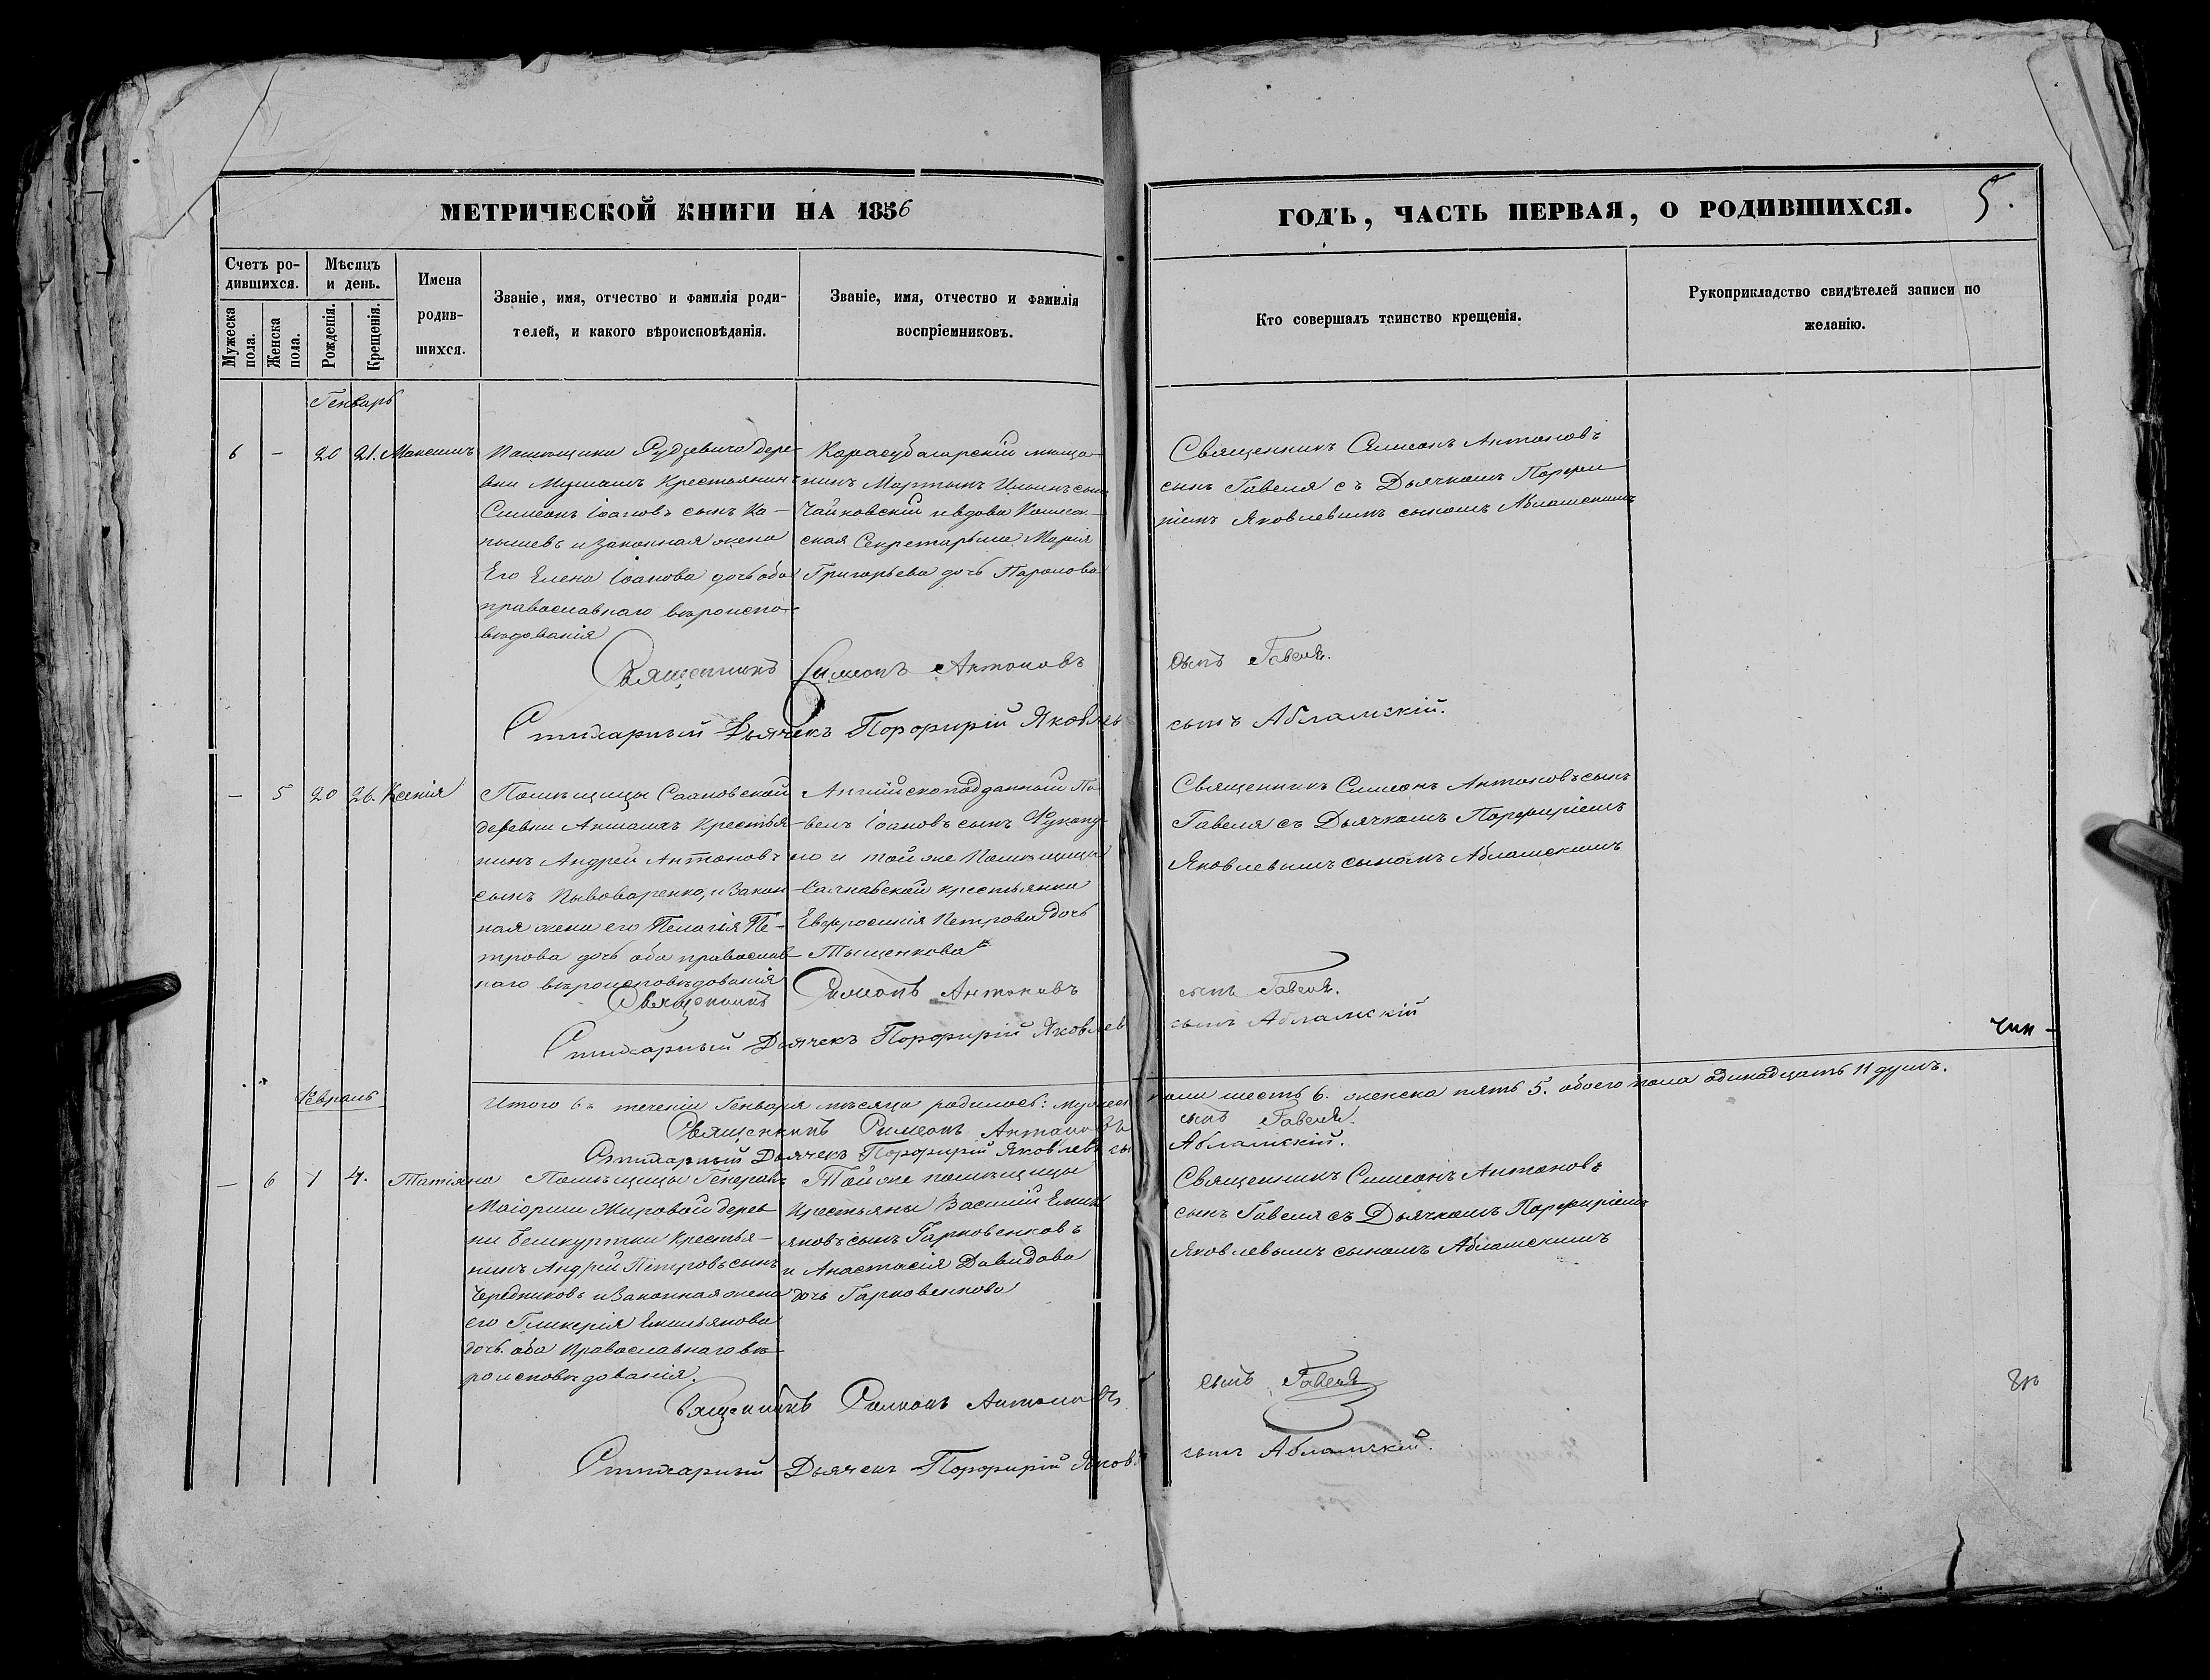 МЕТРИЧЕСКОЙ КНИГИ НА 1856
Счетъ ро-
дившихся.
Мужеска пола.
Женска пола.
Мѣсяцъ
и день.
Рожденія.
Крещенія.
Имена
родив-
шихся.
Званіе, имя, отчество и фамилія роди-
телей, и какого вѣроисповѣданія.
Званіе, имя, отчество и фамилія
воспріемниковъ.
Генварь
6 - 20 21. Максимъ
Помѣщика Рудзевича дере-
вни Крестьянинъ
Симеонъ Іоановъ сынъ Ка-
пышевъ и законная жена
Его Елена Іоанова дочь оба
православнаго вѣроиспо-
вѣдованія
Карасубазарскій мѣща-
нинъ Мартынъ Ильинъ сынъ
Чайковскій и вдова
ская Секретарша Марія
Григорьева дочь
Священникъ Симеонъ Антоновъ
Стихарный Дьячекъ Порфирій Яковлевъ
- 5 20 26. Ксенія
Помѣщицы
деревни Крестья-
нинъ Андрей Антоновъ
сынъ Пывоваренко, и Закон-
ная жена его Пелагія Пе-
трова дочь оба православ-
наго вѣроисповѣдованія
Англійскоподданный Па-
велъ Іоановъ сынъ
и той же Помѣщицы
крестьянка
Евфросинія Петрова дочь
Тыщенкова
Священникъ Симеонъ Антоновъ
Стихарный Дьячекъ Порфирій Яковлев
Февраль
Итого въ теченіи Генваря мѣсяца родилось: мужеск
Священникъ Симеонъ Антоновъ
Стихарный Дьячекъ Порфирій Яковлевъ сы
- 6 1 4. Татіяна
Помѣщицы Генералъ
Маіорши Жировой дерев-
ни Крестья-
нинъ Андрей Петровъ сынъ
Чередниковъ и Законная жена
его Гликерія Емильянова
дочь оба Православнаго вѣ-
роисповѣдованія.
Той же помѣщицы
Крестьяны Василій Емил
яновъ сынъ Гарковенковъ
и Анастасія Давидова
дочь Гарковенкова
Священникъ Симеонъ Антоновъ
Стихарный Дьячекъ Порфирій Яковл
ГОДЪ, ЧАСТЬ ПЕРВАЯ, О РОДИВШИХСЯ.
5.
Кто совершалъ таинство крещенія.
Рукоприкладство свидѣтелей записи по
желанію.
Священникъ Симеонъ Антоновъ
сынъ Гавеля съ Дьячкомъ Порфи-
ріемъ Яковлевымъ сыномъ Абламскимъ
сынъ Гавеля.
сынъ Абламскій.
Священникъ Симеонъ Антоновъ сынъ
Гавеля съ Дьячкомъ Порфиріемъ
Яковлевымъ сыномъ Абламскимъ
сынъ Гавеля.
сынъ Абламскій
пола шесть 6. женска пять 5. обоего пола одинадцать 11 душъ.
сынъ Гавеля.
Абламскій.
Священникъ Симеонъ Антоновъ
сынъ Гавеля съ Дьячкомъ Порфиріемъ
Яковлевымъ сыномъ Абламскимъ
сынъ Гавеля
сынъ Абламскій.